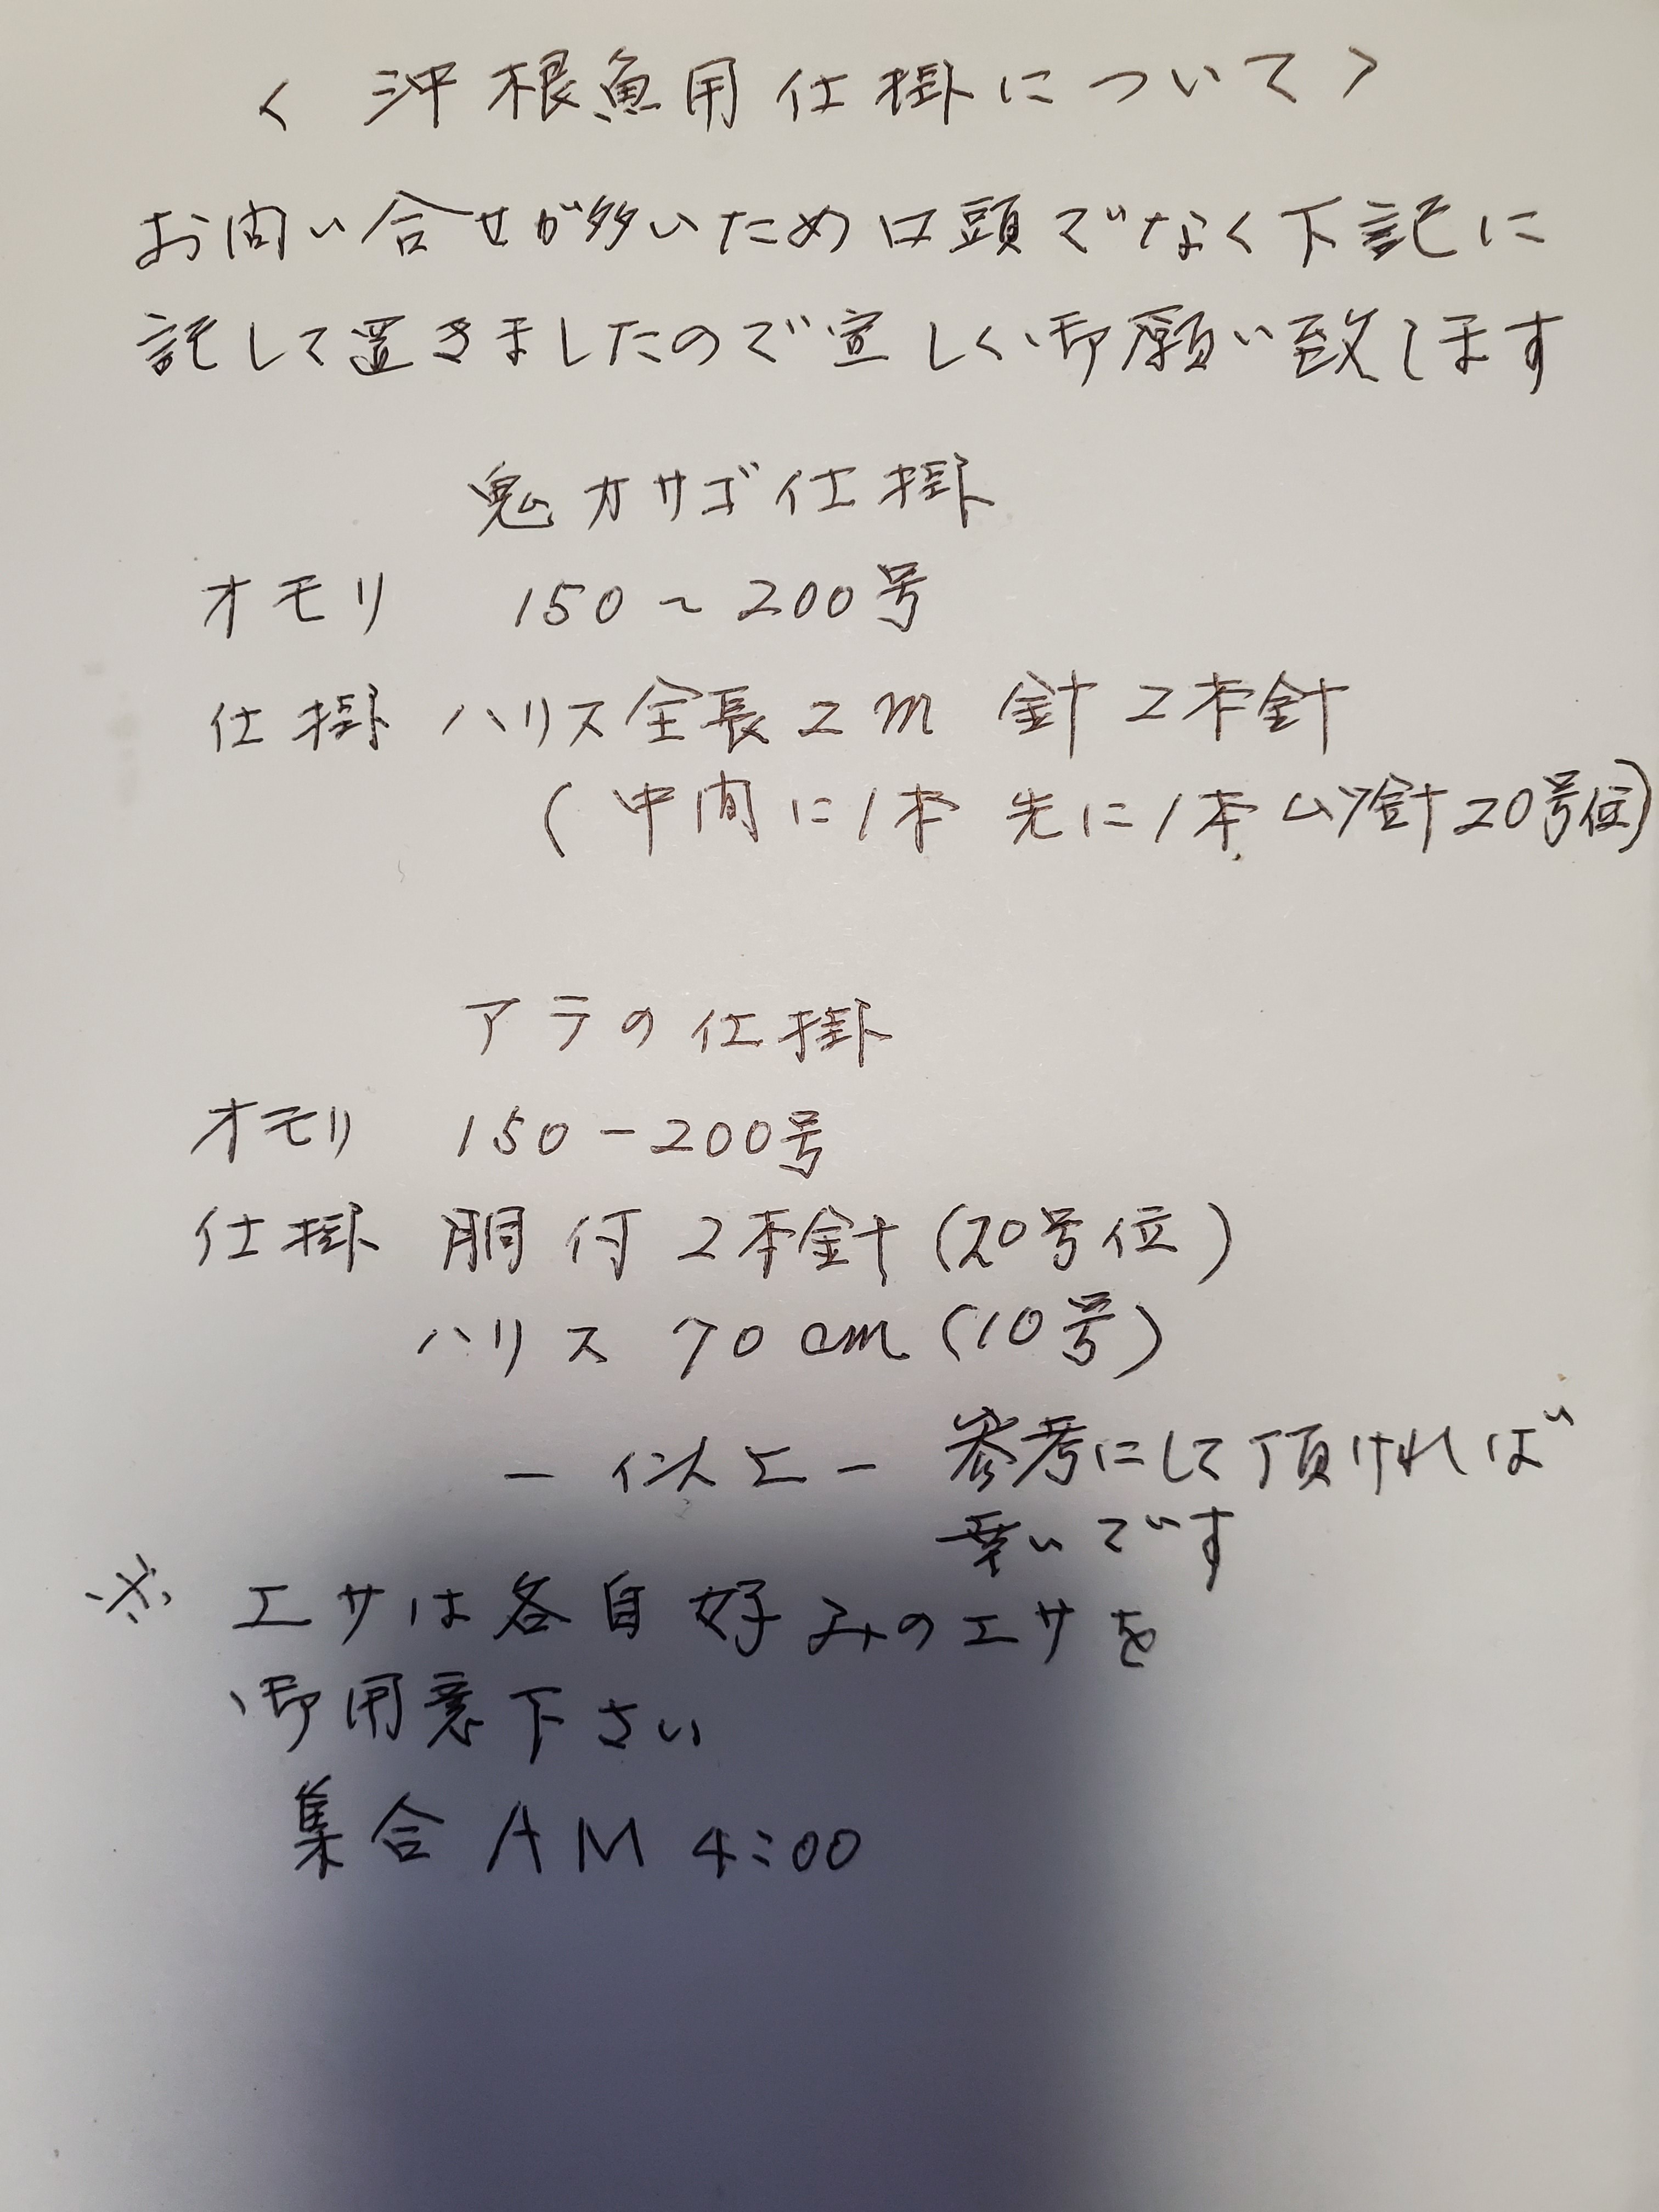 < 沖根魚用仕掛について>
お問い合せが多いため口頭でなく下記に
記して置きましたので宜しく御願い致します
鬼カサゴ仕掛
オモリ 150～200号
仕掛 ハリス全長2m 針 2本針
(中間に1本 先に1本ムツ針20号位)
アラの仕掛
オモリ 150-200号
仕掛 胴付 2本針(20号位)
ハリス 70cm(10号)
-以上- 参考にして頂ければ
幸いです
※ エサは各自好みのエサを
御用意下さい
集合 AM 4:00